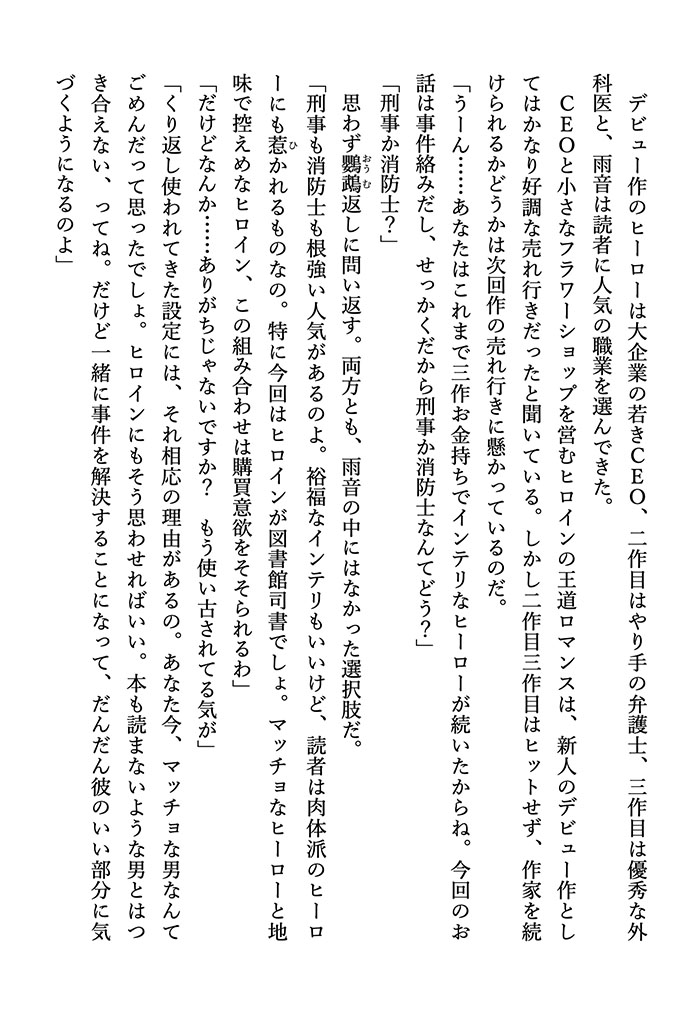 デビュー作のヒーローは大企業の若きＣＥＯ、二作目はやり手の弁護士、三作目は優秀な外
科医と、雨音は読者に人気の職業を選んできた。
　ＣＥＯと小さなフラワーショップを営むヒロインの王道ロマンスは、新人のデビュー作とし
てはかなり好調な売れ行きだったと聞いている。しかし二作目三作目はヒットせず、作家を続
けられるかどうかは次回作の売れ行きに懸かっているのだ。
「うーん……あなたはこれまで三作お金持ちでインテリなヒーローが続いたからね。今回のお
話は事件絡みだし、せっかくだから刑事か消防士なんてどう？」
「刑事か消防士？」
　思わず鸚鵡（おうむ）返しに問い返す。両方とも、雨音の中にはなかった選択肢だ。
「刑事も消防士も根強い人気があるのよ。裕福なインテリもいいけど、読者は肉体派のヒーロ
ーにも惹（ひ）かれるものなの。特に今回はヒロインが図書館司書でしょ。マッチョなヒーローと地
味で控えめなヒロイン、この組み合わせは購買意欲をそそられるわ」
「だけどなんか……ありがちじゃないですか？　もう使い古されてる気が」
「くり返し使われてきた設定には、それ相応の理由があるの。あなた今、マッチョな男なんて
ごめんだって思ったでしょ。ヒロインにもそう思わせればいい。本も読まないような男とはつ
き合えない、ってね。だけど一緒に事件を解決することになって、だんだん彼のいい部分に気
づくようになるのよ」